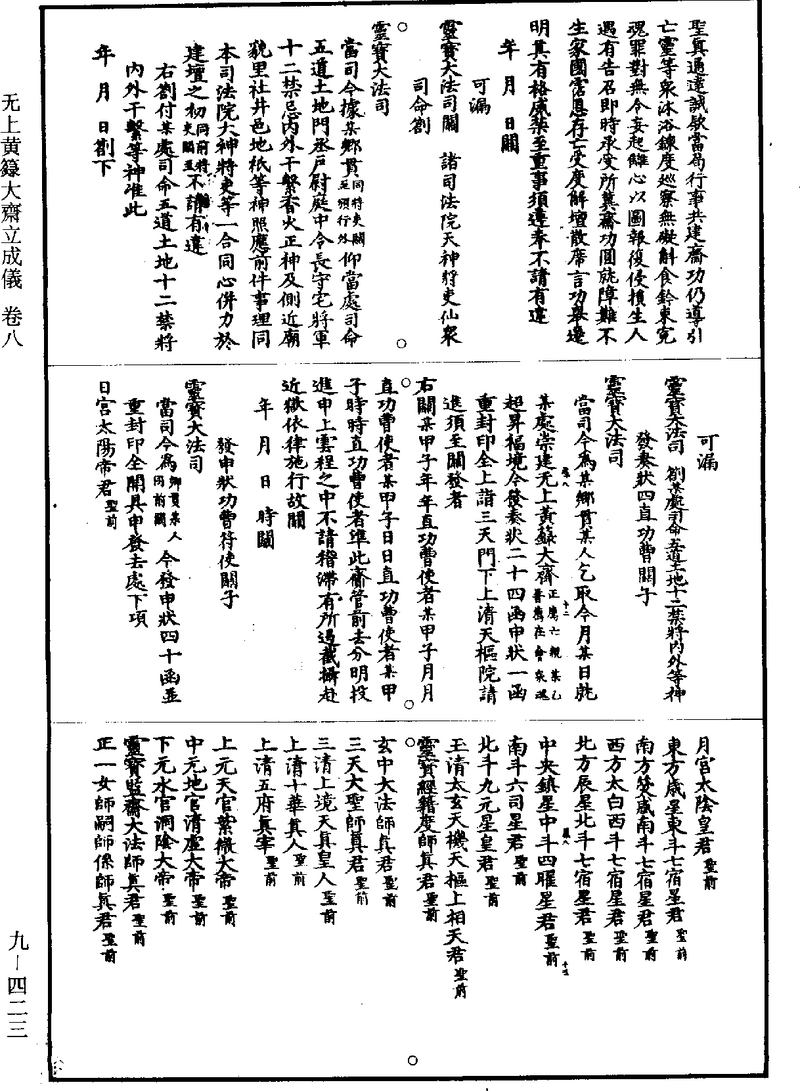 聖真通達誠欵當局行事共建齋功仍導引
亡靈等衆沐浴鍊度巡察無礙斛食鈐束冤
魂罪對無令妄起讎心以圖報復侵損生人
遇有告召即時承受所冀齋功圓就障難不
生家國霑恩存亡受度解壇散席言功舉遷
明其有格威藥至重事須遵奉不請有違
年 月 日關
可漏
靈寶大法司關 諸司法院天神將吏仙衆
司命劄
靈寶大法司
當司今據某鄉貫同將吏關至頒行外仰當處司命
五道土地門丞戶尉庭中令長守宅將軍
十二禁忌內外干繫香火正神及側近廟
貌里社井邑地衹等神照應前件事理同
本司法院大神將吏等一合同心併力於
建壇之初同前將吏關至不請有違
右劄付某處司命五道土地十二禁將
內外干繫等神准此
年 月 日劄下
可漏
靈寶大法司 劄某處司命五道土地十二禁將內外等神
發奏狀四直功曹關子
靈寶大法司
當司今為某鄉貫某人乞取今月某日就
某處崇建无上黃籙大齋正薦亡親某乙普薦在會衆魂
超昇福境今發奏狀二十四函申狀一函
重封印全上詣三天門下上清天樞院請
進須至關發者
右關某甲子年年直功曹使者某甲子月月
直功曹使者某甲子日日直功曹使者某甲
子時時直功曹使者準此齋管前去分明投
進申上雲程之中不請稽滯有所過截攝赴
近獄依律施行故關
年 月 日 時關
發申狀功曹符使關子
靈寶大法司
當司今為鄉貫某人同前關今發申狀四十函並
重封印全開具申發去處下項
日宮太陽帝君聖前
月宮太陰皇君聖前
東方歲星東斗七宿星君聖前
南方熒惑南斗七宿星君聖前
西方太白西斗七宿星君聖前
北方辰星北斗七宿星君聖前
中央鎮星中斗四曜星君聖前
南斗六司星君聖前
北斗九元星皇君聖前
玉清太玄天機天樞上相天君聖前
靈寶經籍度師真君聖前
玄中大法師真君聖前
三天大聖師真君聖前
三清上境天真皇人聖前
上清十華真人聖前
上清五府真宰聖前
上元天官紫微大帝聖前
中元地官清虛大帝聖前
下元水官洞陰大帝聖前
靈寶監齋大法師真君聖前
正一女師嗣師係師真君聖前
无上黄籙大齋立成儀 卷八
九—四二三